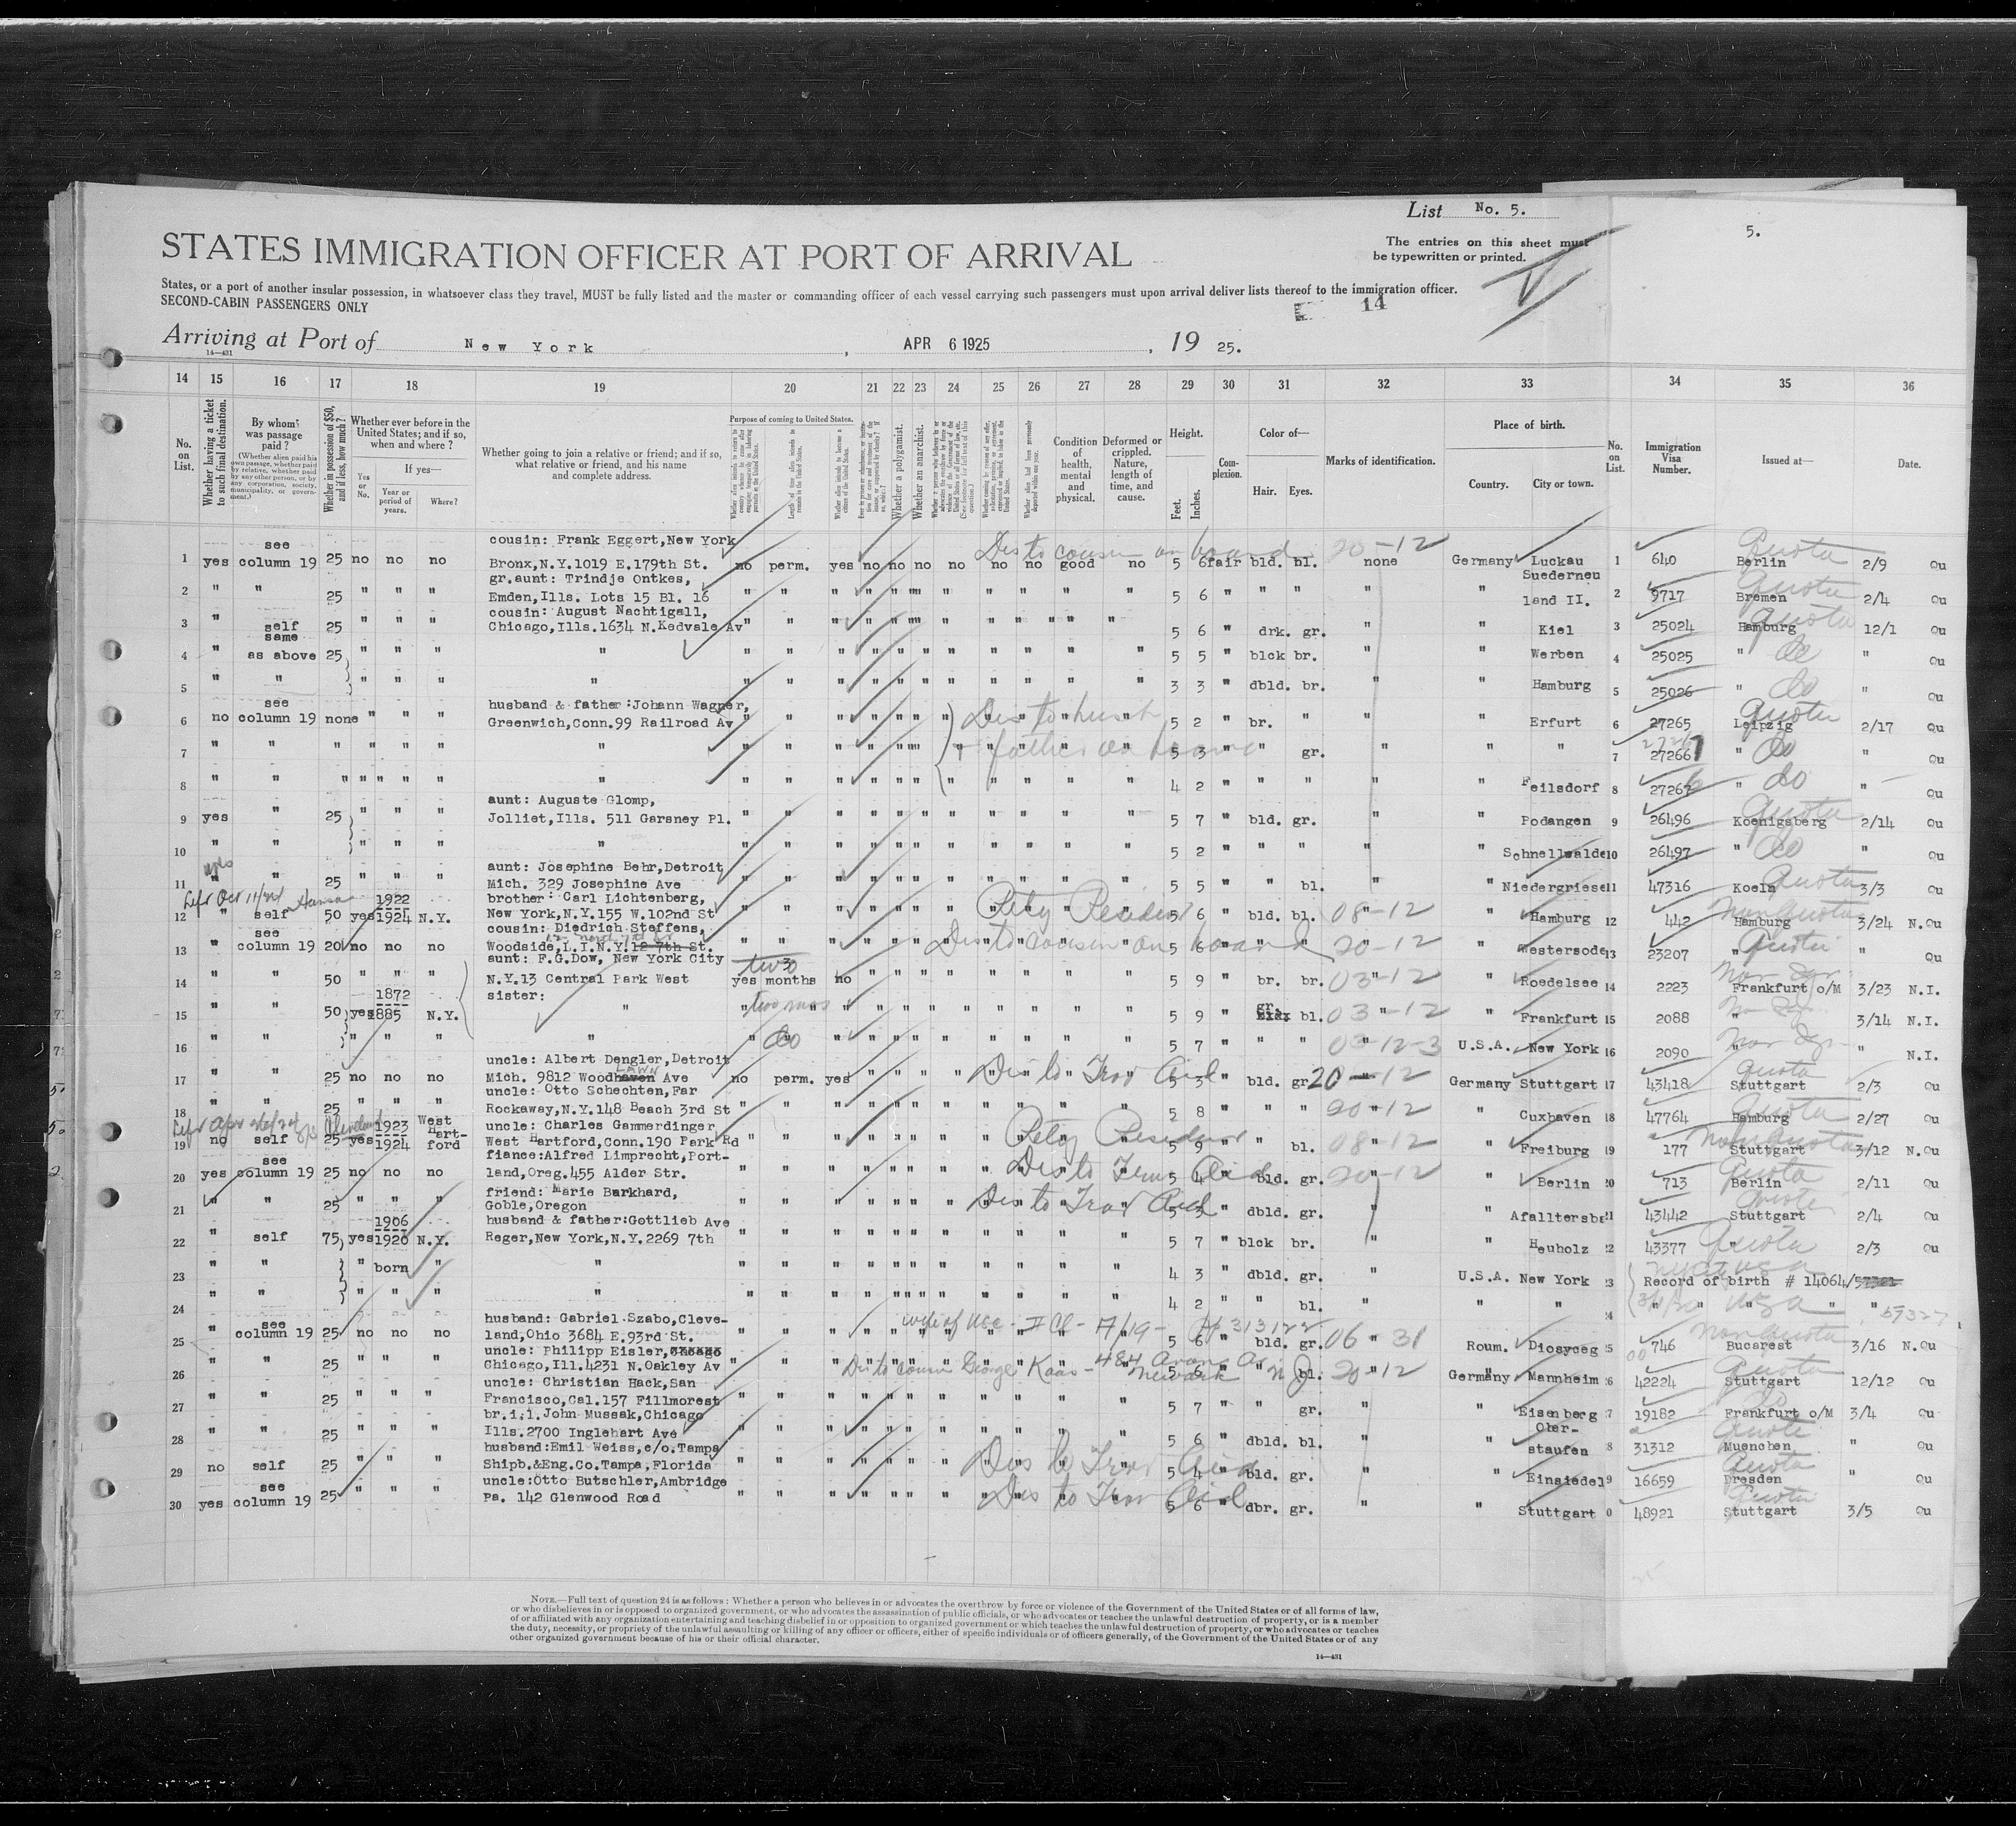 List No. 5.
5.
STATES IMMIGRATION OFFICER AT PORT OF ARRIVAL
The entries on this sheet must
be typewritten or printed.
States, or a port of another insular possession, in whatsoever class they travel, MUST be fully listed and the master or commanding officer of each vessel carrying such passengers must upon arrival deliver lists thereof to the immigration officer.
SECOND-CABIN PASSENGERS ONLY
14
Arriving at Port of New York, APR 6 1925, 19 25.
14—431
14 15 16 17 18 19 20 21 22 23 24 25 26 27 28 29 30 31 32 33 34 35 36
No. on List.
Whether having a ticket to such final destination.
By whom was passage paid?
(Whether alien paid his own passage, whether paid by relative, whether paid by any other person, or by any corporation, society, municipality, or government.)
Whether in possession of $50, and if less, how much?
Whether ever before in the United States; and if so, when and where?
Yes or No.
If yes—
Year or period of years.
Where?
Whether going to join a relative or friend; and if so, what relative or friend, and his name and complete address.
Purpose of coming to United States.
Length of time alien intends to remain in the United States.
Whether alien intends to become a citizen of the United States.
Whether a polygamist.
Whether an anarchist.
Condition of health, mental and physical.
Deformed or crippled. Nature, length of time, and cause.
Height.
Feet.
Inches.
Complexion.
Color of—
Hair.
Eyes.
Marks of identification.
Place of birth.
Country.
City or town.
No. on List.
Immigration Visa Number.
Issued at—
Date.
see cousin: Frank Eggert, New York Dis to cousin on board 20-12 Quota
1 yes column 19 25 no no no Bronx,N.Y.1019 E.179th St. no perm. yes no no no no no no good no 5 6 fair bld. bl. none Germany Luckau 1 640 Berlin 2/9 Qu
gr.aunt: Trindje Ontkes, Suederneu Quota
2 " " 25 " " " Emden,Ills. Lots 15 Bl. 16 " " " " " " " " " " " 5 6 " " " " " land II. 2 9717 Bremen 2/4 Qu
cousin: August Nachtigall, Quota
3 " self 25 " " " Chicago,Ills.1634 N.Kedvale Av " " " " " " " " " " " 5 6 " drk. gr. " " Kiel 3 25024 Hamburg 12/1 Qu
same
4 " as above 25 " " " " " " " " " " " " " " " 5 5 " blck br. " " Werben 4 25025 " do " Qu
5 " " " " " " " " " " " " " " " " " 3 3 " dbld. br. " " Hamburg 5 25026 " do " Qu
see husband & father:Johann Wagner, Quota
6 no column 19 none " " " Greenwich,Conn.99 Railroad Av " " " " " " " Dis to husb 5 2 " br. " " " Erfurt 6 27265 Leipzig 2/17 Qu
7 " " " " " " " " " " " " " + father on board 5 3 " " gr. " " " 7 27266 7 " do " Qu
8 " " " " " " " " " " " " " " " " " " 4 2 " " " " " Feilsdorf 8 27267 6 " do " Qu
aunt: Auguste Glomp, Quota
9 yes " 25 " " " Jolliet,Ills. 511 Garsney Pl. " " " " " " " " " " " 5 7 " bld. gr. " " Podangen 9 26496 Koenigsberg 2/14 Qu
10 " " " " " " " " " " " " " " " " " 5 2 " " " " " Schnellwalde 10 26497 " do " Qu
yes aunt: Josephine Behr,Detroit Quota
11 " 25 " " " Mich. 329 Josephine Ave " " " " " " " " " " " 5 5 " " bl. " " Niedergriesel 11 47316 Koeln 3/3 Qu
1922 brother: Carl Lichtenberg, Retg Resident 08-12 Non Quota
12 " self 50 yes 1924 N.Y. New York,N.Y.155 W.102nd St " " " " " " " 5 6 " bld. bl. " Hamburg 12 442 Hamburg 3/24 N.Qu
see cousin: Diedrich Steffens, Dis to cousin on board 20-12 Quota
13 " column 19 20 no no no Woodside,L.I.N.Y.12 7th St. " " " " " " " 5 6 " " " " Westersode 13 23207 " Qu
aunt: F.G.Dow, New York City two
14 " " 50 " " " N.Y.13 Central Park West yes months no " " " " " " " " 5 9 " br. br. 03-12 " Roedelsee 14 2223 Frankfurt o/M 3/23 N.I.
1872 sister: two mos gr.
15 " " 50 yes 1885 N.Y. " " " " " " " " " " " 5 9 " bl. 03-12 " Frankfurt 15 2088 " 3/14 N.I.
16 " " " " " " " do " " " " " " " " " 5 7 " " " 03-12-3 U.S.A. New York 16 2090 " " N.I.
uncle: Albert Dengler,Detroit LAWN Dis to Trav Aid 20-12 Quota
17 " " 25 no no no Mich. 9812 Woodhaven Ave no perm. yes " " " " " " " " 5 3 " bld. gr. Germany Stuttgart 17 43418 Stuttgart 2/3 Qu
uncle: Otto Schechten,Far 20-12 Quota
18 " " 25 " " " Rockaway,N.Y.148 Beach 3rd St " " " " " " " " " " " 5 8 " " " " Cuxhaven 18 47764 Hamburg 2/27 Qu
1923 West Hart- uncle: Charles Gammerdinger Retg Resident 08-12 Non Quota
19 no self 25 yes 1924 ford West Hartford,Conn.190 Park Rd " " " " " " " 5 9 " bl. " Freiburg 19 177 Stuttgart 3/12 N.Qu
see fiance:Alfred Limprecht,Port- Dis to Trav Aid 20-12 Quota
20 yes column 19 25 no no no land,Oreg.455 Alder Str. " " " " " " " 5 4 bld. gr. " Berlin 20 713 Berlin 2/11 Qu
friend: Marie Burkhard, Dis to Trav Aid Quota
21 " " 25 " " " Goble,Oregon " " " " " " " 5 5 " dbld. gr. " Afalltersba 21 43442 Stuttgart 2/4 Qu
1906 husband & father:Gottlieb Ave Quota
22 " self 75 yes 1920 N.Y. Reger,New York,N.Y.2269 7th " " " " " " " " " " " 5 7 " blck br. " " Heuholz 22 43377 " 2/3 Qu
23 " " " born " " " " " " " " " " " " " 4 3 " dbld. gr. U.S.A. New York 23 Record of birth # 14064/
24 " " " " " " " " " " " " " " " " " 4 2 " " bl. " " 24 " " USA " " 57327
see husband: Gabriel Szabo,Cleve- wife of USC - II Cl - 06 31 Non Quota
25 " column 19 25 no no no land,Ohio 3684 E.93rd St. " " " " " " " " " " " 5 6 " bld. gr. " Roum. Diosyceg 25 746 Bucarest 3/16 N.Qu
uncle: Philipp Eisler, Dis to cousin George Kaas - 484 Avon Av Newark N J 20-12 Quota
26 " " 25 " " " Chicago,Ill.4231 N.Oakley Av " " " " " " 5 6 " " bl. Germany Mannheim 26 42224 Stuttgart 12/12 Qu
uncle: Christian Hack,San
27 " " 25 " " " Francisco,Cal.157 Fillmorest " " " " " " " " " " " 5 7 " " gr. " " Eisenberg 27 19182 Frankfurt o/M 3/4 Qu
br.i.l. John Mussak,Chicago Ober- Quota
28 " " 25 " " " Ills.2700 Inglehart Ave " " " " " " " " " " " 5 6 " dbld. bl. " " staufen 28 31312 Muenchen " Qu
husband:Emil Weiss,c/o.Tampa Dis to Trav Aid Quota
29 no self 25 " " " Shipb.&Eng.Co.Tampa,Florida " " " " " " " 5 4 " bld. gr. " " Einsiedel 29 16659 Dresden " Qu
see uncle:Otto Butschler,Ambridge Dis to Trav Aid Quota
30 yes column 19 25 " " " Pa. 142 Glenwood Road " " " " " " " 5 6 " dbr. gr. " " Stuttgart 30 48921 Stuttgart 3/5 Qu
NOTE.—Full text of question 24 is as follows: Whether a person who believes in or advocates the overthrow by force or violence of the Government of the United States or of all forms of law,
or who disbelieves in or is opposed to organized government, or who advocates the assassination of public officials, or who advocates or teaches the unlawful destruction of property, or is a member
of or affiliated with any organization entertaining and teaching disbelief in or opposition to organized government or which teaches the unlawful destruction of property, or who advocates or teaches
the duty, necessity, or propriety of the unlawful assaulting or killing of any officer or officers, either of specific individuals or of officers generally, of the Government of the United States or of any
other organized government because of his or their official character.
14—431